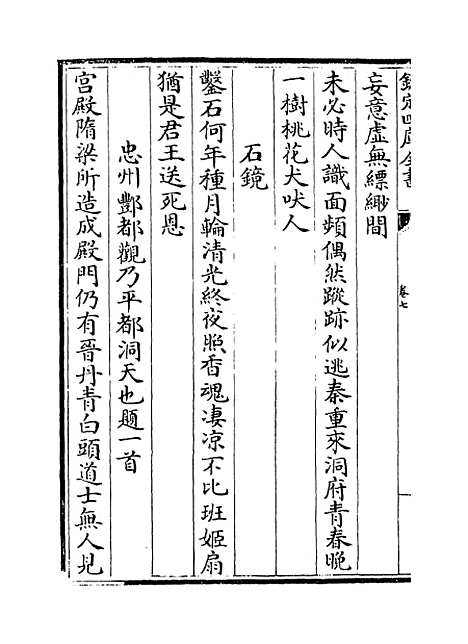 欽定四庫全書
卷七
妄意虛無縹緲間
未必時人識面頻偶然蹤跡似逃秦重來洞府青春晚
一樹桃花犬吠人
石鏡
鑿石何年種月輪清光終夜照香魂淒凉不比班姬扇
猶是君王送死恩
忠州酆都觀乃平都洞天也題一首
宮殿隋梁所造成殿門仍有晉丹青白頭道士無人見